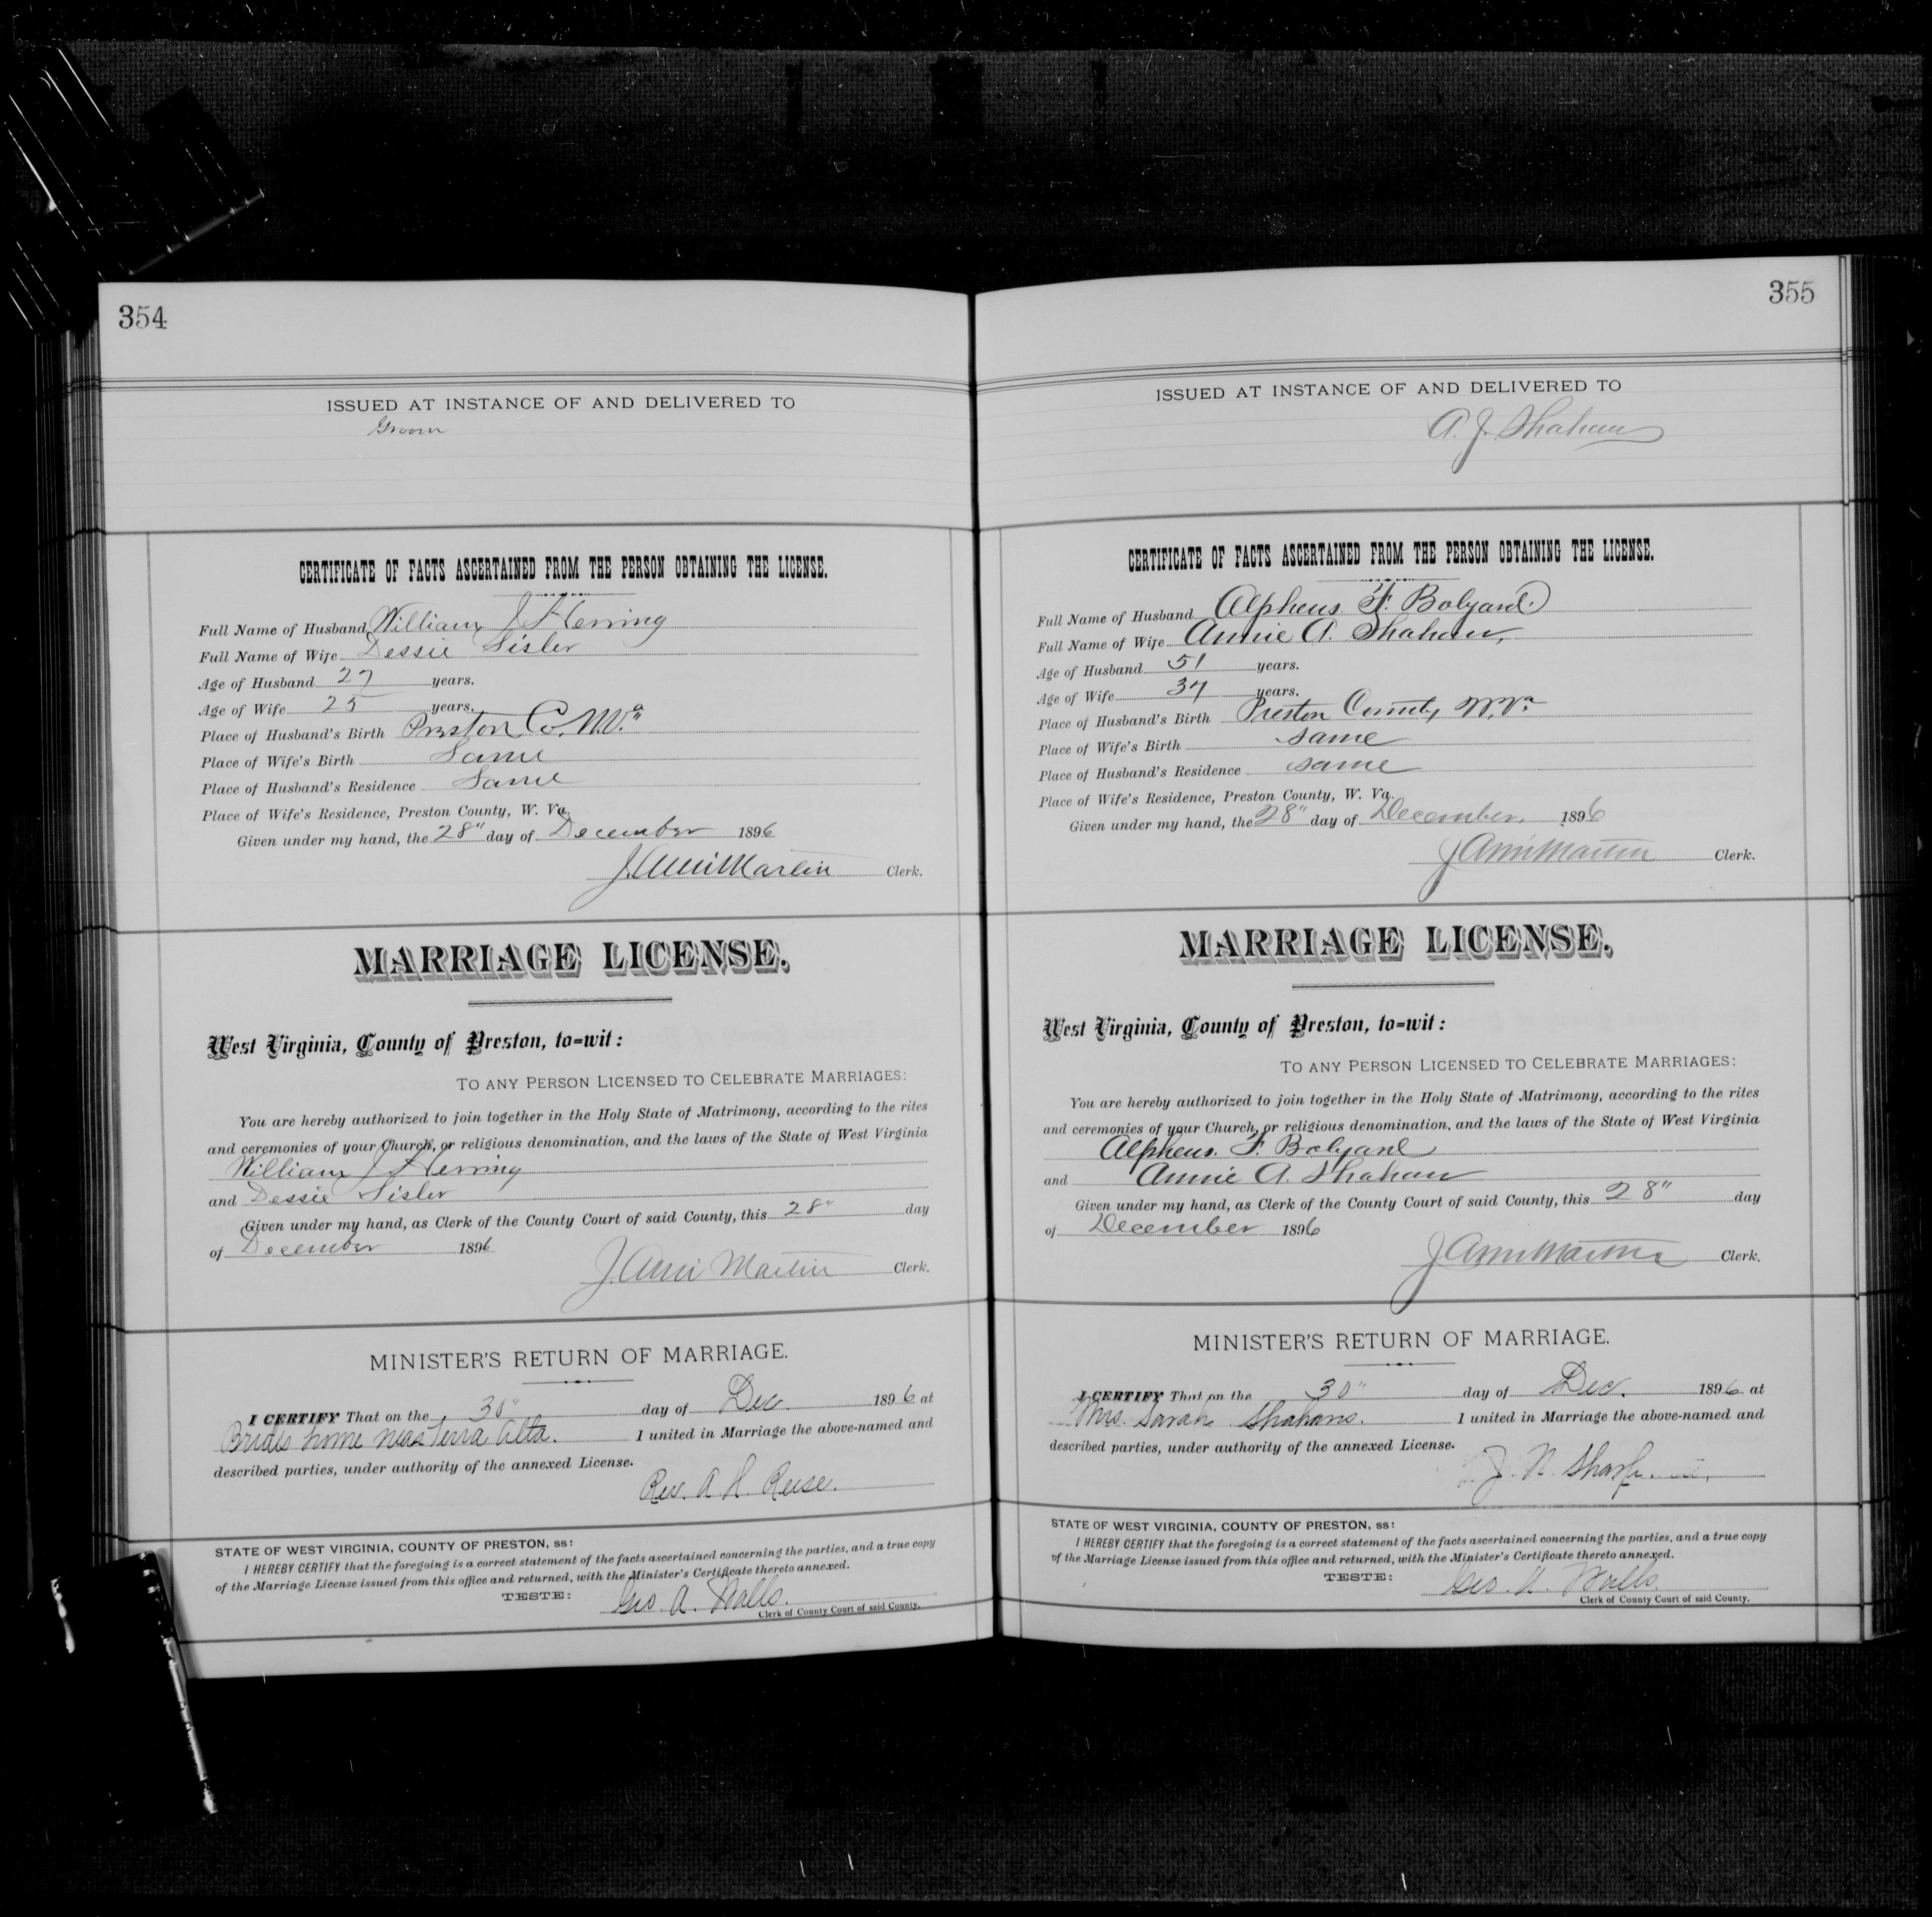 354
ISSUED AT INSTANCE OF AND DELIVERED TO
Groom
CERTIFICATE OF FACTS ASCERTAINED FROM THE PERSON OBTAINING THE LICENSE.
Full Name of Husband William J Herring
Full Name of Wife Dessie Sisler
Age of Husband 27 years.
Age of Wife 25 years.
Place of Husband's Birth Preston Co. W.Va
Place of Wife's Birth Same
Place of Husband's Residence Same
Place of Wife's Residence, Preston County, W. Va.
Given under my hand, the 28" day of December 1896
J. Ami Martin Clerk.
MARRIAGE LICENSE.
West Virginia, County of Preston, to=wit:
TO ANY PERSON LICENSED TO CELEBRATE MARRIAGES:
You are hereby authorized to join together in the Holy State of Matrimony, according to the rites
and ceremonies of your Church, or religious denomination, and the laws of the State of West Virginia
William J Herring
and Dessie Sisler
Given under my hand, as Clerk of the County Court of said County, this 28" day
of December 1896
J. Ami Martin Clerk.
MINISTER'S RETURN OF MARRIAGE.
I CERTIFY That on the 30" day of Dec. 1896 at
Brides home near Terra Alta. I united in Marriage the above-named and
described parties, under authority of the annexed License.
Rev. A. H. Reese.
STATE OF WEST VIRGINIA, COUNTY OF PRESTON, ss:
I HEREBY CERTIFY that the foregoing is a correct statement of the facts ascertained concerning the parties, and a true copy
of the Marriage License issued from this office and returned, with the Minister's Certificate thereto annexed.
TESTE: Geo. A. Walls.
Clerk of County Court of said County.
355
ISSUED AT INSTANCE OF AND DELIVERED TO
A. J. Shahan
CERTIFICATE OF FACTS ASCERTAINED FROM THE PERSON OBTAINING THE LICENSE.
Full Name of Husband Alpheus F. Bolyard
Full Name of Wife Annie A. Shahan,
Age of Husband 51 years.
Age of Wife 37 years.
Place of Husband's Birth Preston County W.Va
Place of Wife's Birth same
Place of Husband's Residence same
Place of Wife's Residence, Preston County, W. Va.
Given under my hand, the 28" day of December, 1896
J Ami Martin Clerk.
MARRIAGE LICENSE.
West Virginia, County of Preston, to=wit:
TO ANY PERSON LICENSED TO CELEBRATE MARRIAGES:
You are hereby authorized to join together in the Holy State of Matrimony, according to the rites
and ceremonies of your Church, or religious denomination, and the laws of the State of West Virginia
Alpheus. F. Bolyard
and Annie A. Shahan
Given under my hand, as Clerk of the County Court of said County, this 28" day
of December 1896
J Ami Martin Clerk.
MINISTER'S RETURN OF MARRIAGE.
I CERTIFY That on the 30" day of Dec. 1896 at
Mrs. Sarah Shahans. I united in Marriage the above-named and
described parties, under authority of the annexed License.
J. N. Sharp.
STATE OF WEST VIRGINIA, COUNTY OF PRESTON, ss:
I HEREBY CERTIFY that the foregoing is a correct statement of the facts ascertained concerning the parties, and a true copy
of the Marriage License issued from this office and returned, with the Minister's Certificate thereto annexed.
TESTE: Geo. A. Walls.
Clerk of County Court of said County.